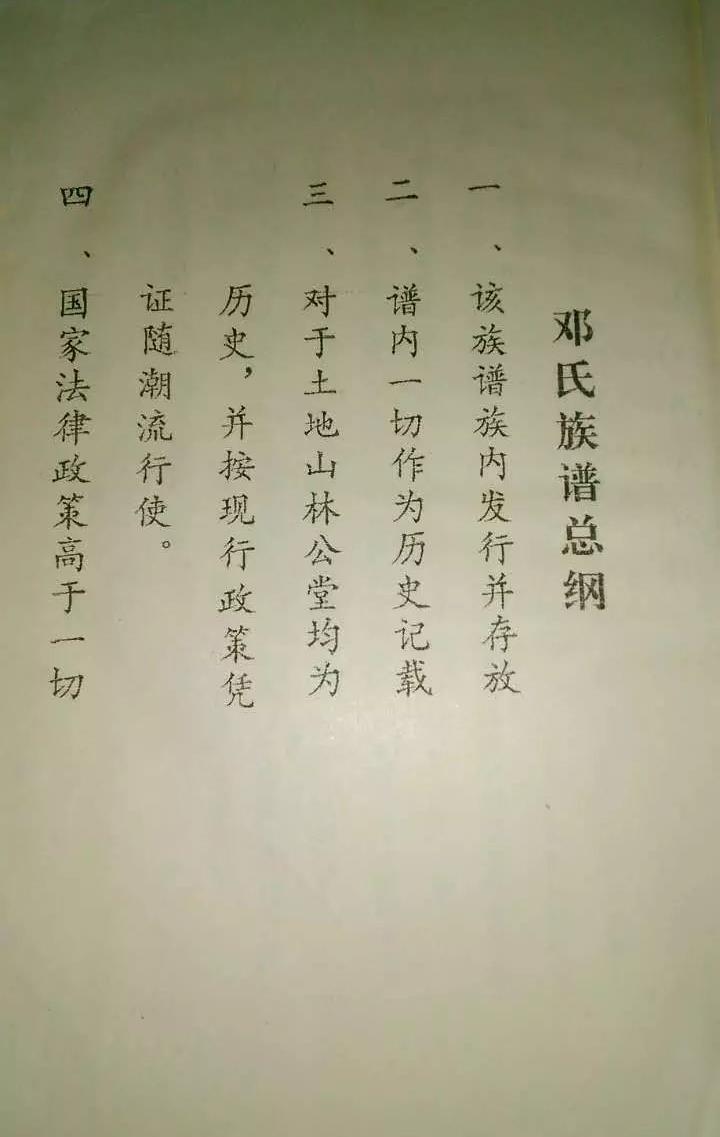 邓氏族谱总纲
一、该族谱族内发行并存放
二、谱内一切作为历史记载
三、对于土地山林公堂均为
历史，并按现行政策凭
证随潮流行使。
四、国家法律政策高于一切